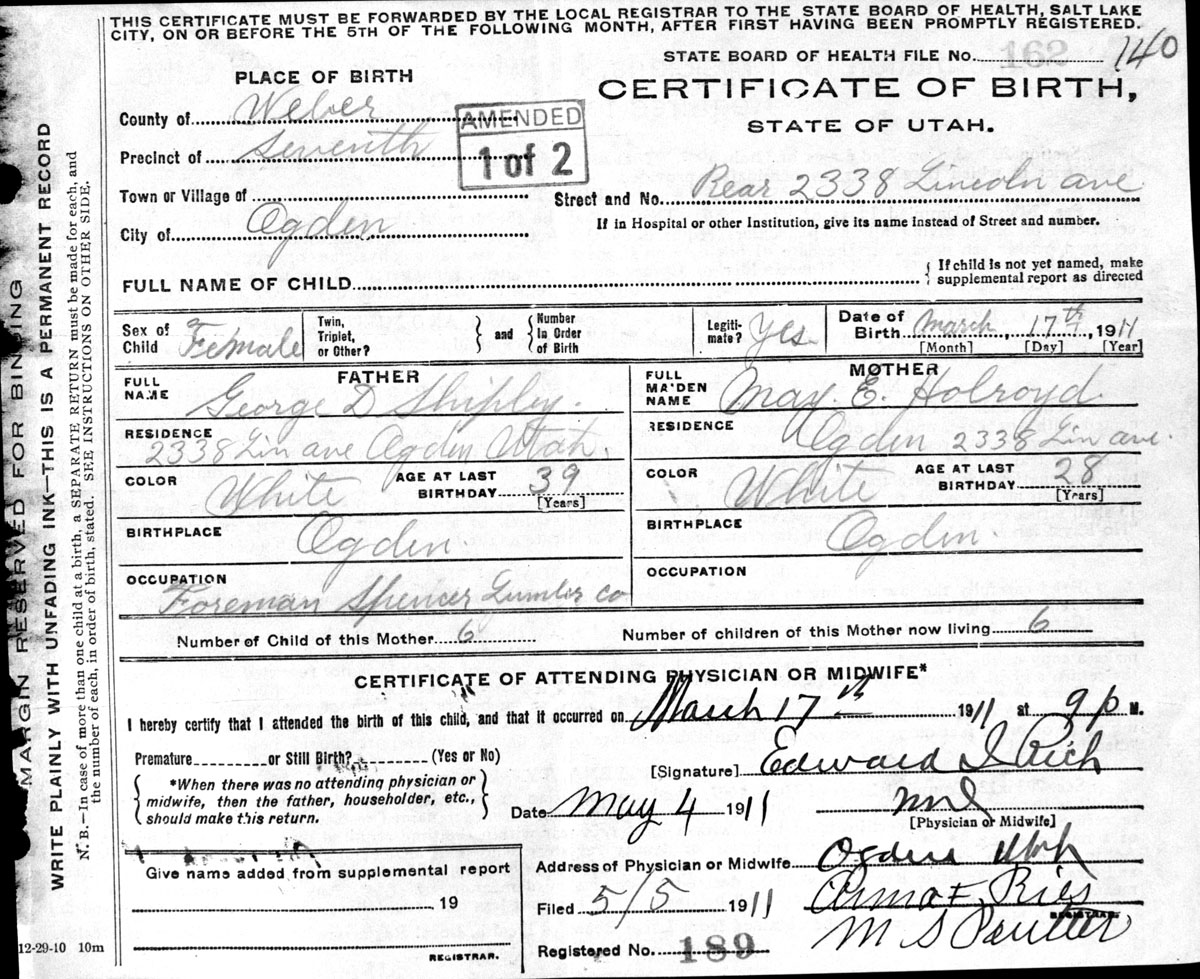 THIS CERTIFICATE MUST BE FORWARDED BY THE LOCAL REGISTRAR TO THE STATE BOARD OF HEALTH, SALT LAKE
CITY, ON OR BEFORE THE 5TH OF THE FOLLOWING MONTH, AFTER FIRST HAVING BEEN PROMPTLY REGISTERED.
STATE BOARD OF HEALTH FILE No. 162 140
PLACE OF BIRTH
CERTIFICATE OF BIRTH,
STATE OF UTAH.
County of Weber
AMENDED
1 of 2
Precinct of Seventh
Town or Village of
Street and No. Rear 2338 Lincoln ave
City of Ogden
If in Hospital or other Institution, give its name instead of Street and number.
FULL NAME OF CHILD
If child is not yet named, make
supplemental report as directed
Sex of
Child Female
Twin,
Triplet,
or Other?
and
Number
In Order
of Birth
Legiti-
mate? Yes
Date of
Birth March 17th 1911
[Month] [Day] [Year]
FATHER
FULL
NAME George D Shipley.
RESIDENCE
2338 Lin ave Ogden Utah.
COLOR White
AGE AT LAST
BIRTHDAY 39
[Years]
BIRTHPLACE Ogden
OCCUPATION
Foreman Spencer Lumber Co
MOTHER
FULL
MAIDEN
NAME May. E. Holroyd
RESIDENCE Ogden 2338 Lin ave.
COLOR White
AGE AT LAST
BIRTHDAY 28
[Years]
BIRTHPLACE Ogden
OCCUPATION
Number of Child of this Mother 6
Number of children of this Mother now living 6
CERTIFICATE OF ATTENDING PHYSICIAN OR MIDWIFE*
I hereby certify that I attended the birth of this child, and that it occurred on March 17th 1911 at 9 p M.
Premature or Still Birth? (Yes or No)
*When there was no attending physician or
midwife, then the father, householder, etc.,
should make this return.
[Signature] Edward I Rich
Date May 4 1911
[Physician or Midwife]
Give name added from supplemental report
19
REGISTRAR.
Address of Physician or Midwife Ogden Utah
Filed 5/5 1911
REGISTRAR.
Registered No. 189
12-29-10 10m
MARGIN RESERVED FOR BINDING
WRITE PLAINLY WITH UNFADING INK—THIS IS A PERMANENT RECORD
N. B.—In case of more than one child at a birth, a SEPARATE RETURN must be made for each, and
the number of each, in order of birth, stated. SEE INSTRUCTIONS ON OTHER SIDE.